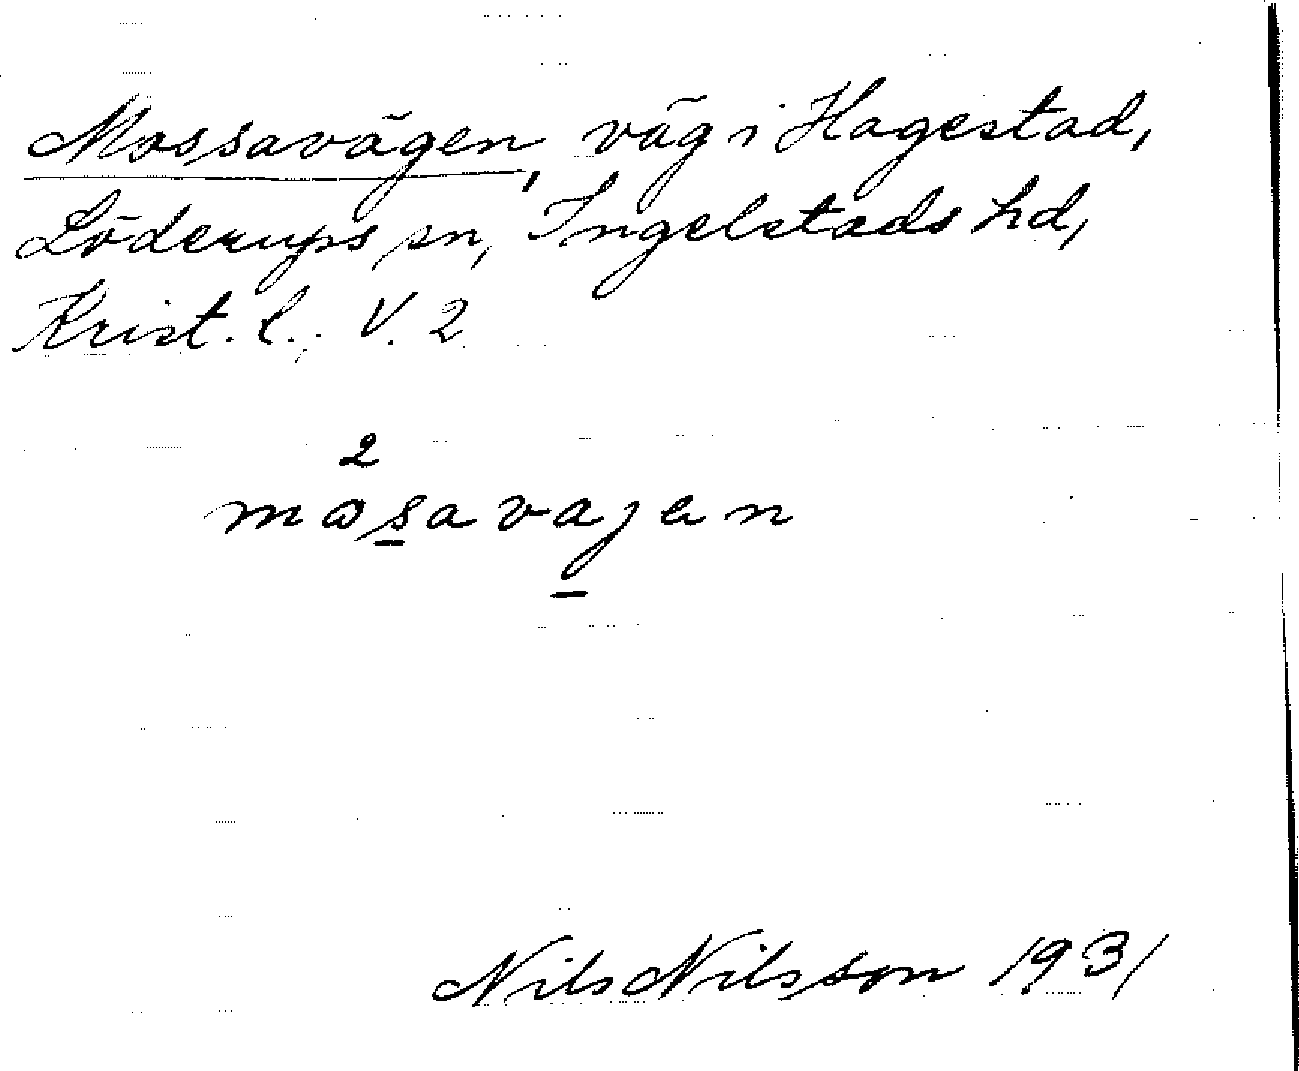 Mossavägen, väg i Hagestad,
Löderups sn, Ingelstads hd,
Krist. l., V. 2
2
måsavajen
Nils Nilsson 1931